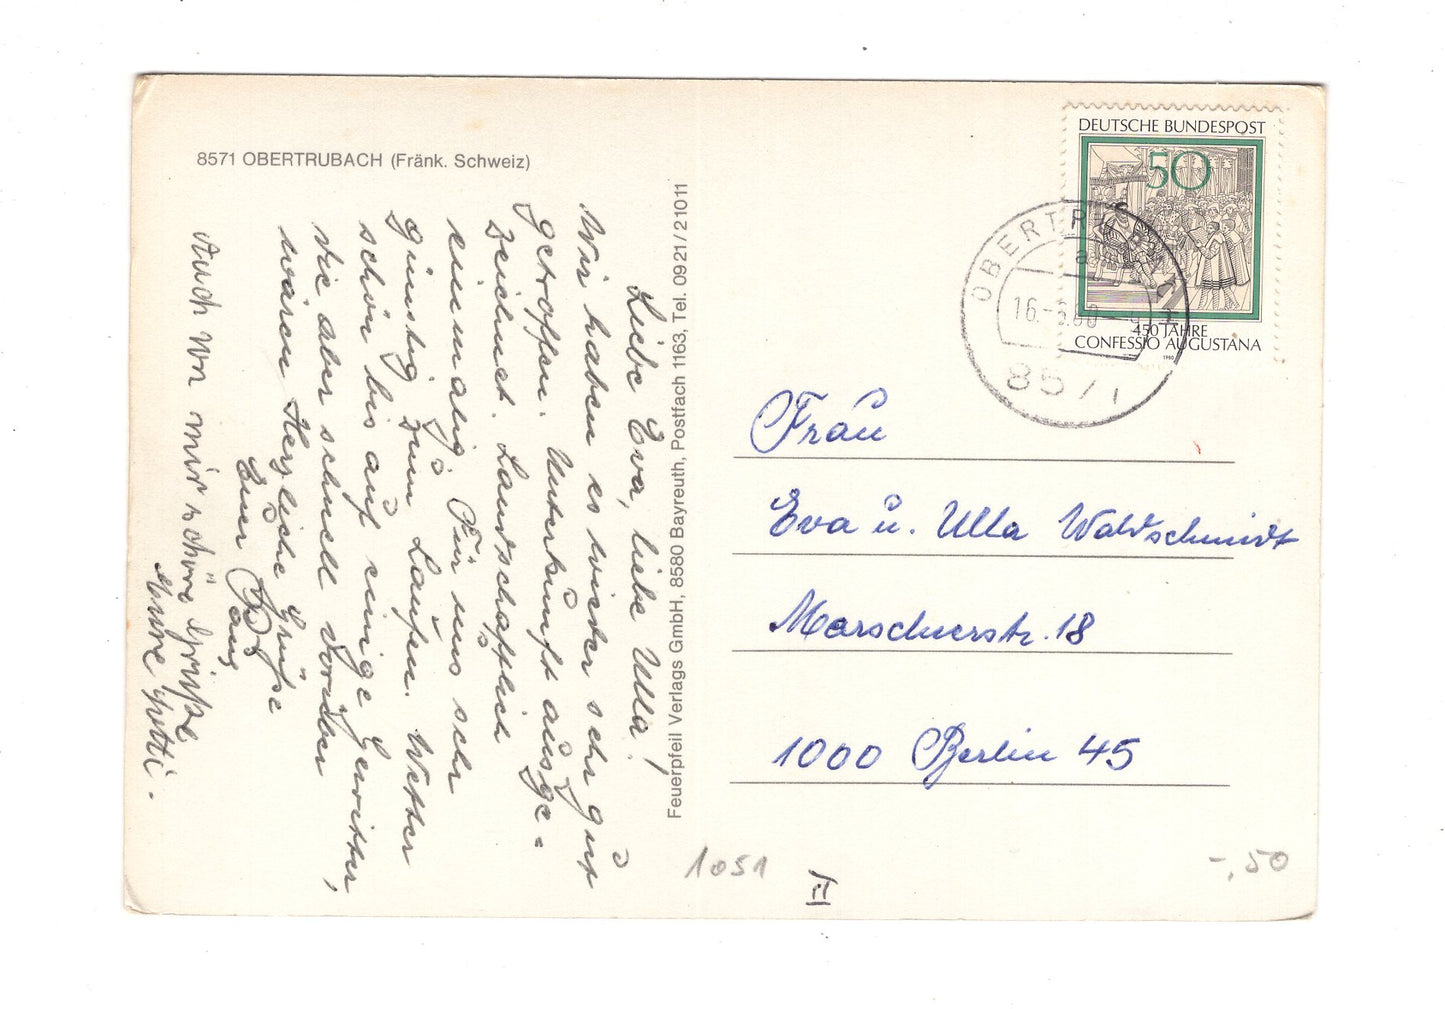 8571 OBERTRUBACH (Fränk. Schweiz)
Liebe Eva, liebe Ulla!
Wir haben es wieder sehr gut
getroffen. Unterkunft ausge=
zeichnet. Landschaftlich
einmalig. Für uns sehr
günstig zum Laufen. Wetter
schön bis auf einige Gewitter,
die aber schnell vorüber
waren. Herzliche Grüße
Euer
Auch von mir schöne Grüße
Feuerpfeil Verlags GmbH, 8580 Bayreuth, Postfach 1163, Tel. 0921/21011
DEUTSCHE BUNDESPOST
50
450 JAHRE
CONFESSIO AUGUSTANA
1980
16.-6.80
8571
Frau
Eva u. Ulla Waldschmidt
Marschnerstr. 18
1000 Berlin 45
1051
-,50